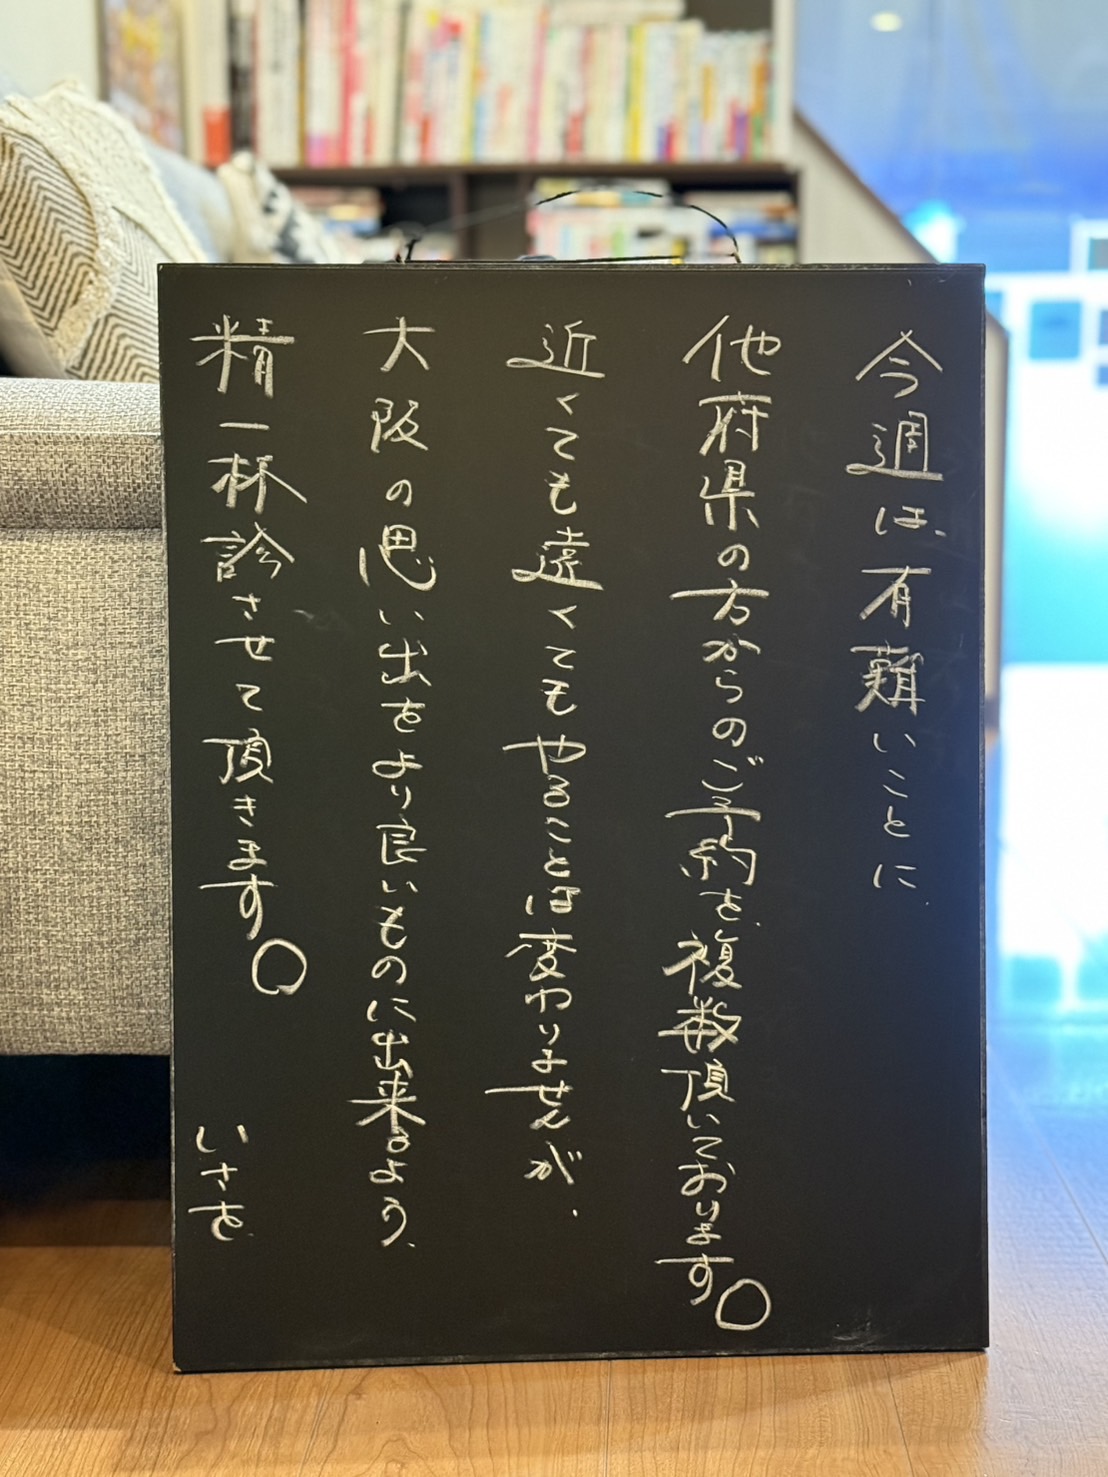 今週は、有難いことに
他府県の方からのご予約を、複数頂いております。
近くても遠くてもやることは変わりませんが、
大阪の思い出をより良いものに出来るよう、
精一杯診させて頂きます。
いさを